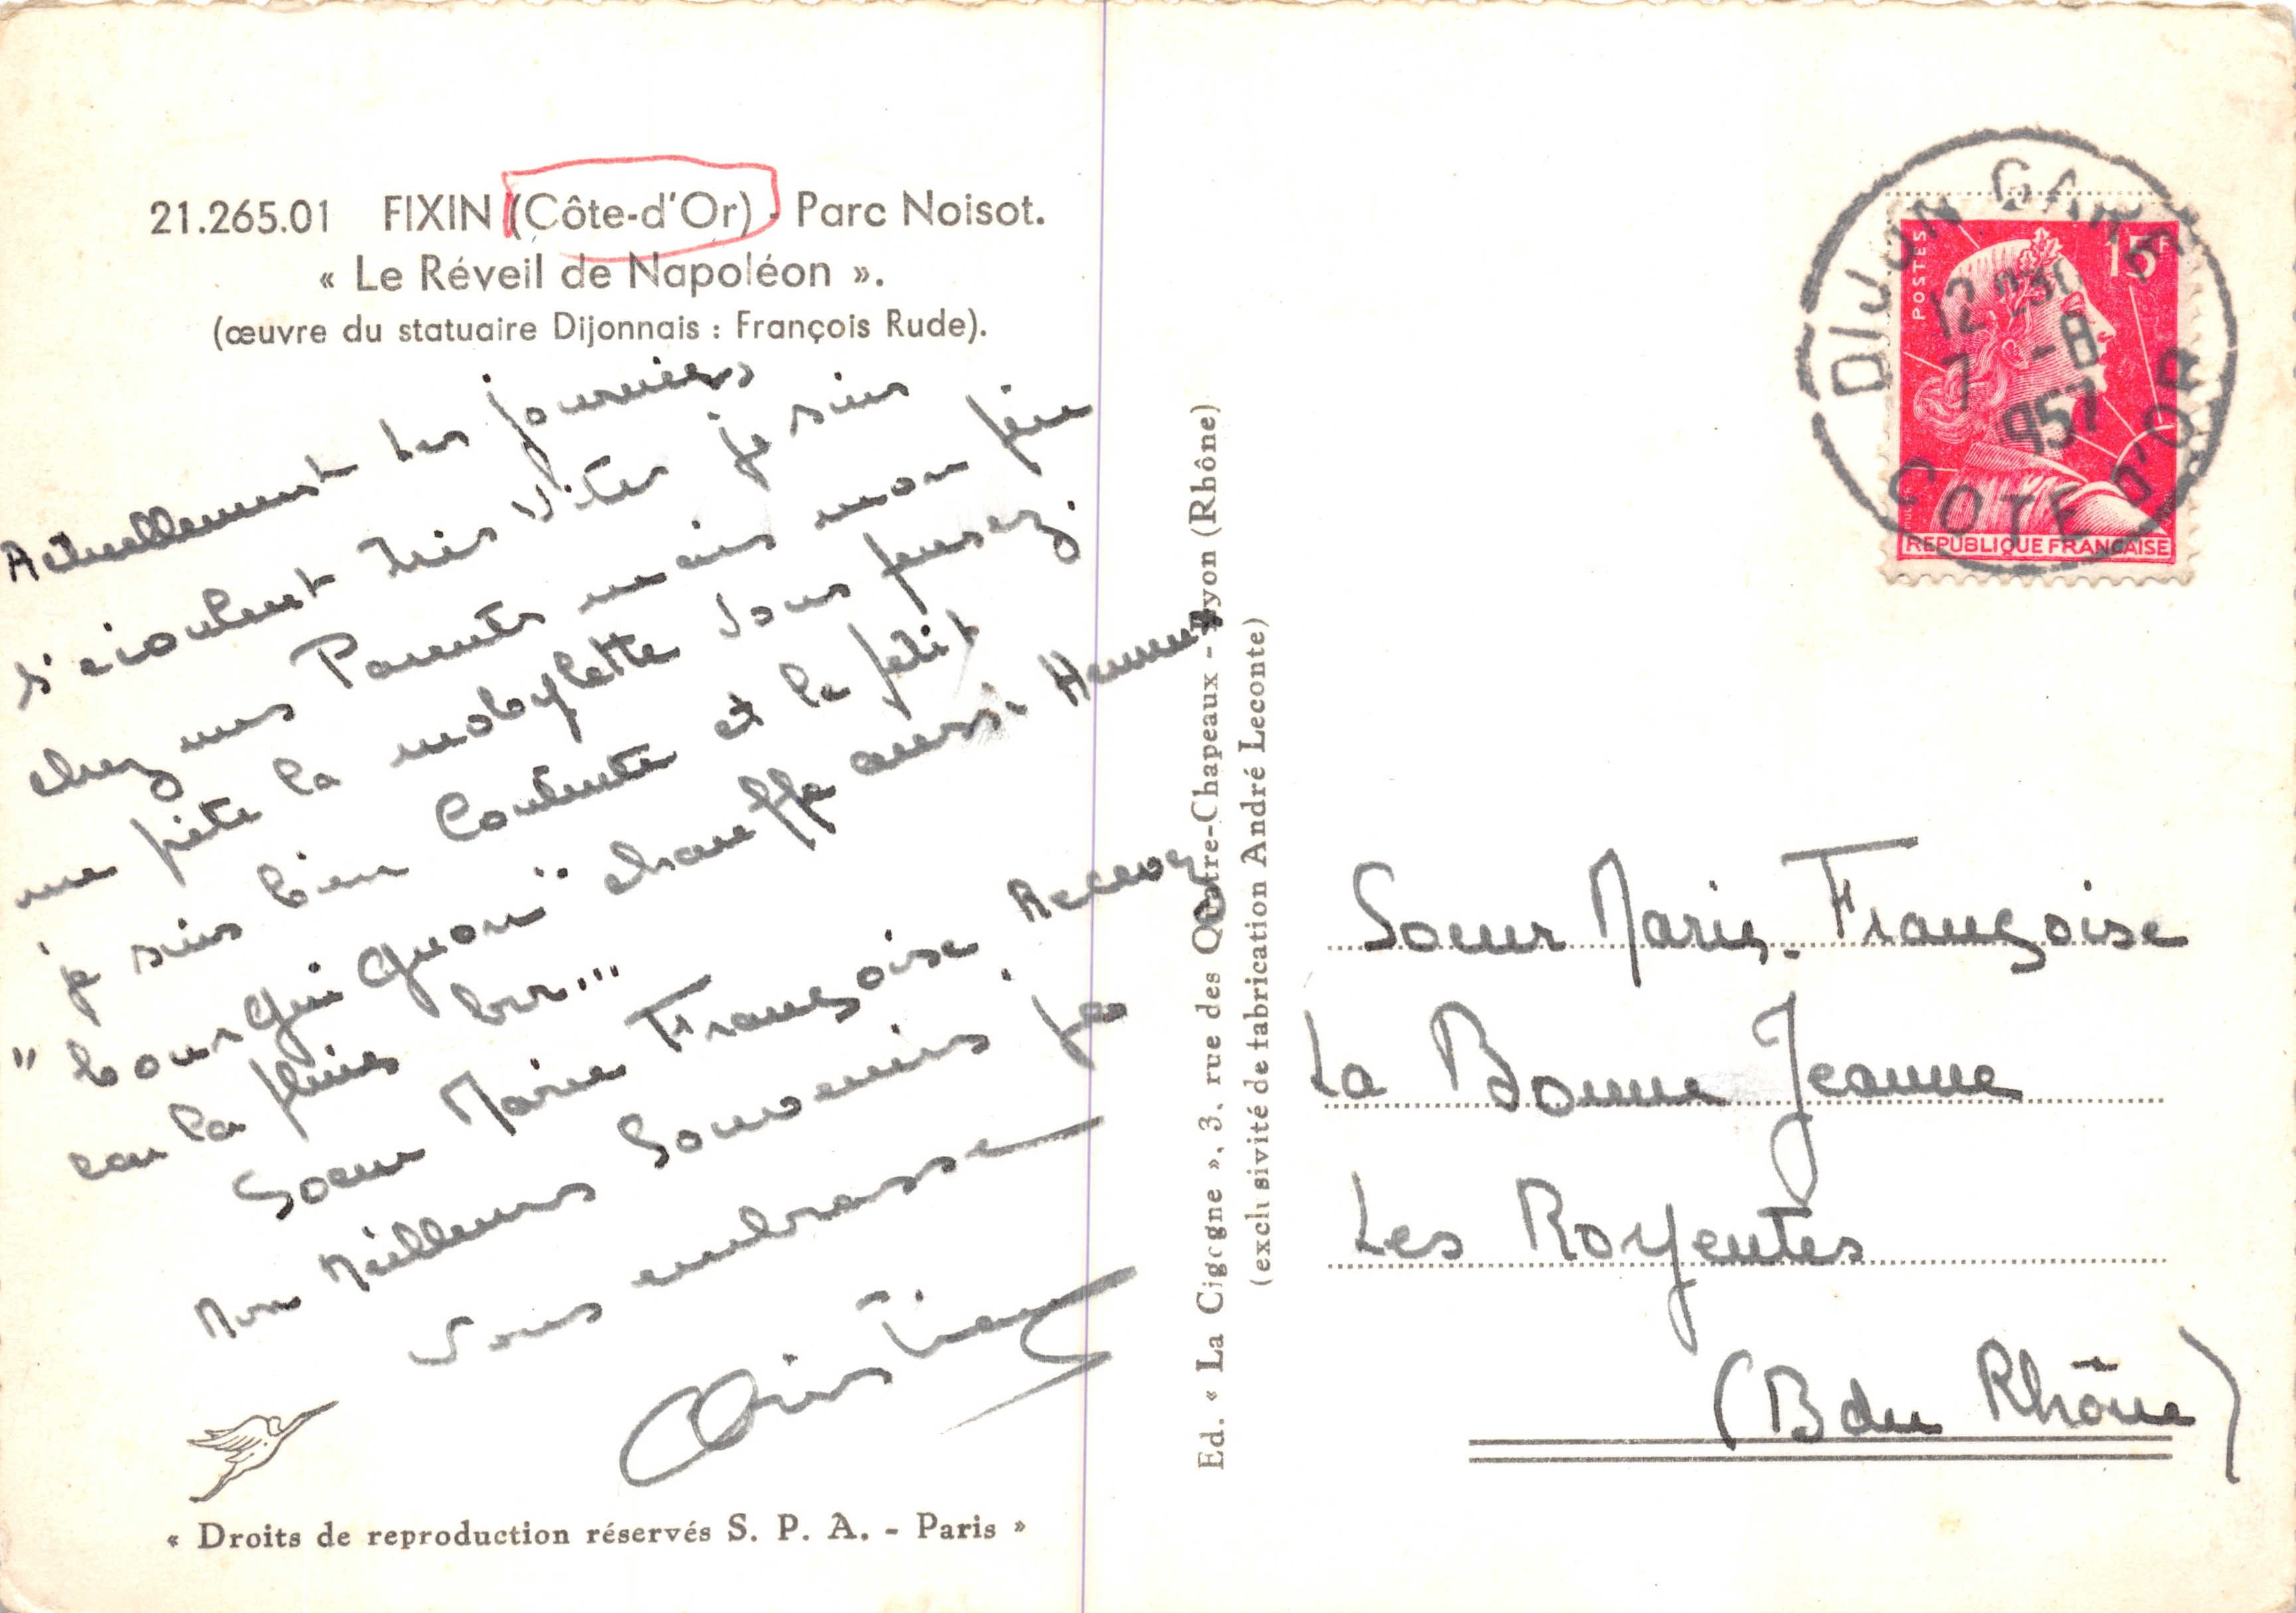 21.265.01 FIXIN (Côte-d'Or) - Parc Noisot.
« Le Réveil de Napoléon ».
(œuvre du statuaire Dijonnais : François Rude).
Actuellement les journées
s'écoulent très vites je suis
chez mes Parents mais mon père
me prête la mobylette vous pensez.
je suis bien contente et le petit
" bourgui guon" chauffe aussi
car la pluie brr...
Soeur Marie Françoise Recevez
mon Meilleurs Souvenirs. je
vous embrasse
« Droits de reproduction réservés S. P. A. - Paris »
Ed. « La Cigogne », 3, rue des Quatre-Chapeaux - Lyon (Rhône)
(exclusivité de fabrication André Leconte)
POSTES
15F
REPUBLIQUE FRANÇAISE
DIJON GARE
12 H30
7 -8
1957
COTE D'OR
Soeur Marie-Françoise
La Bonne Jeanne
Les Royentes
(B du Rhône)